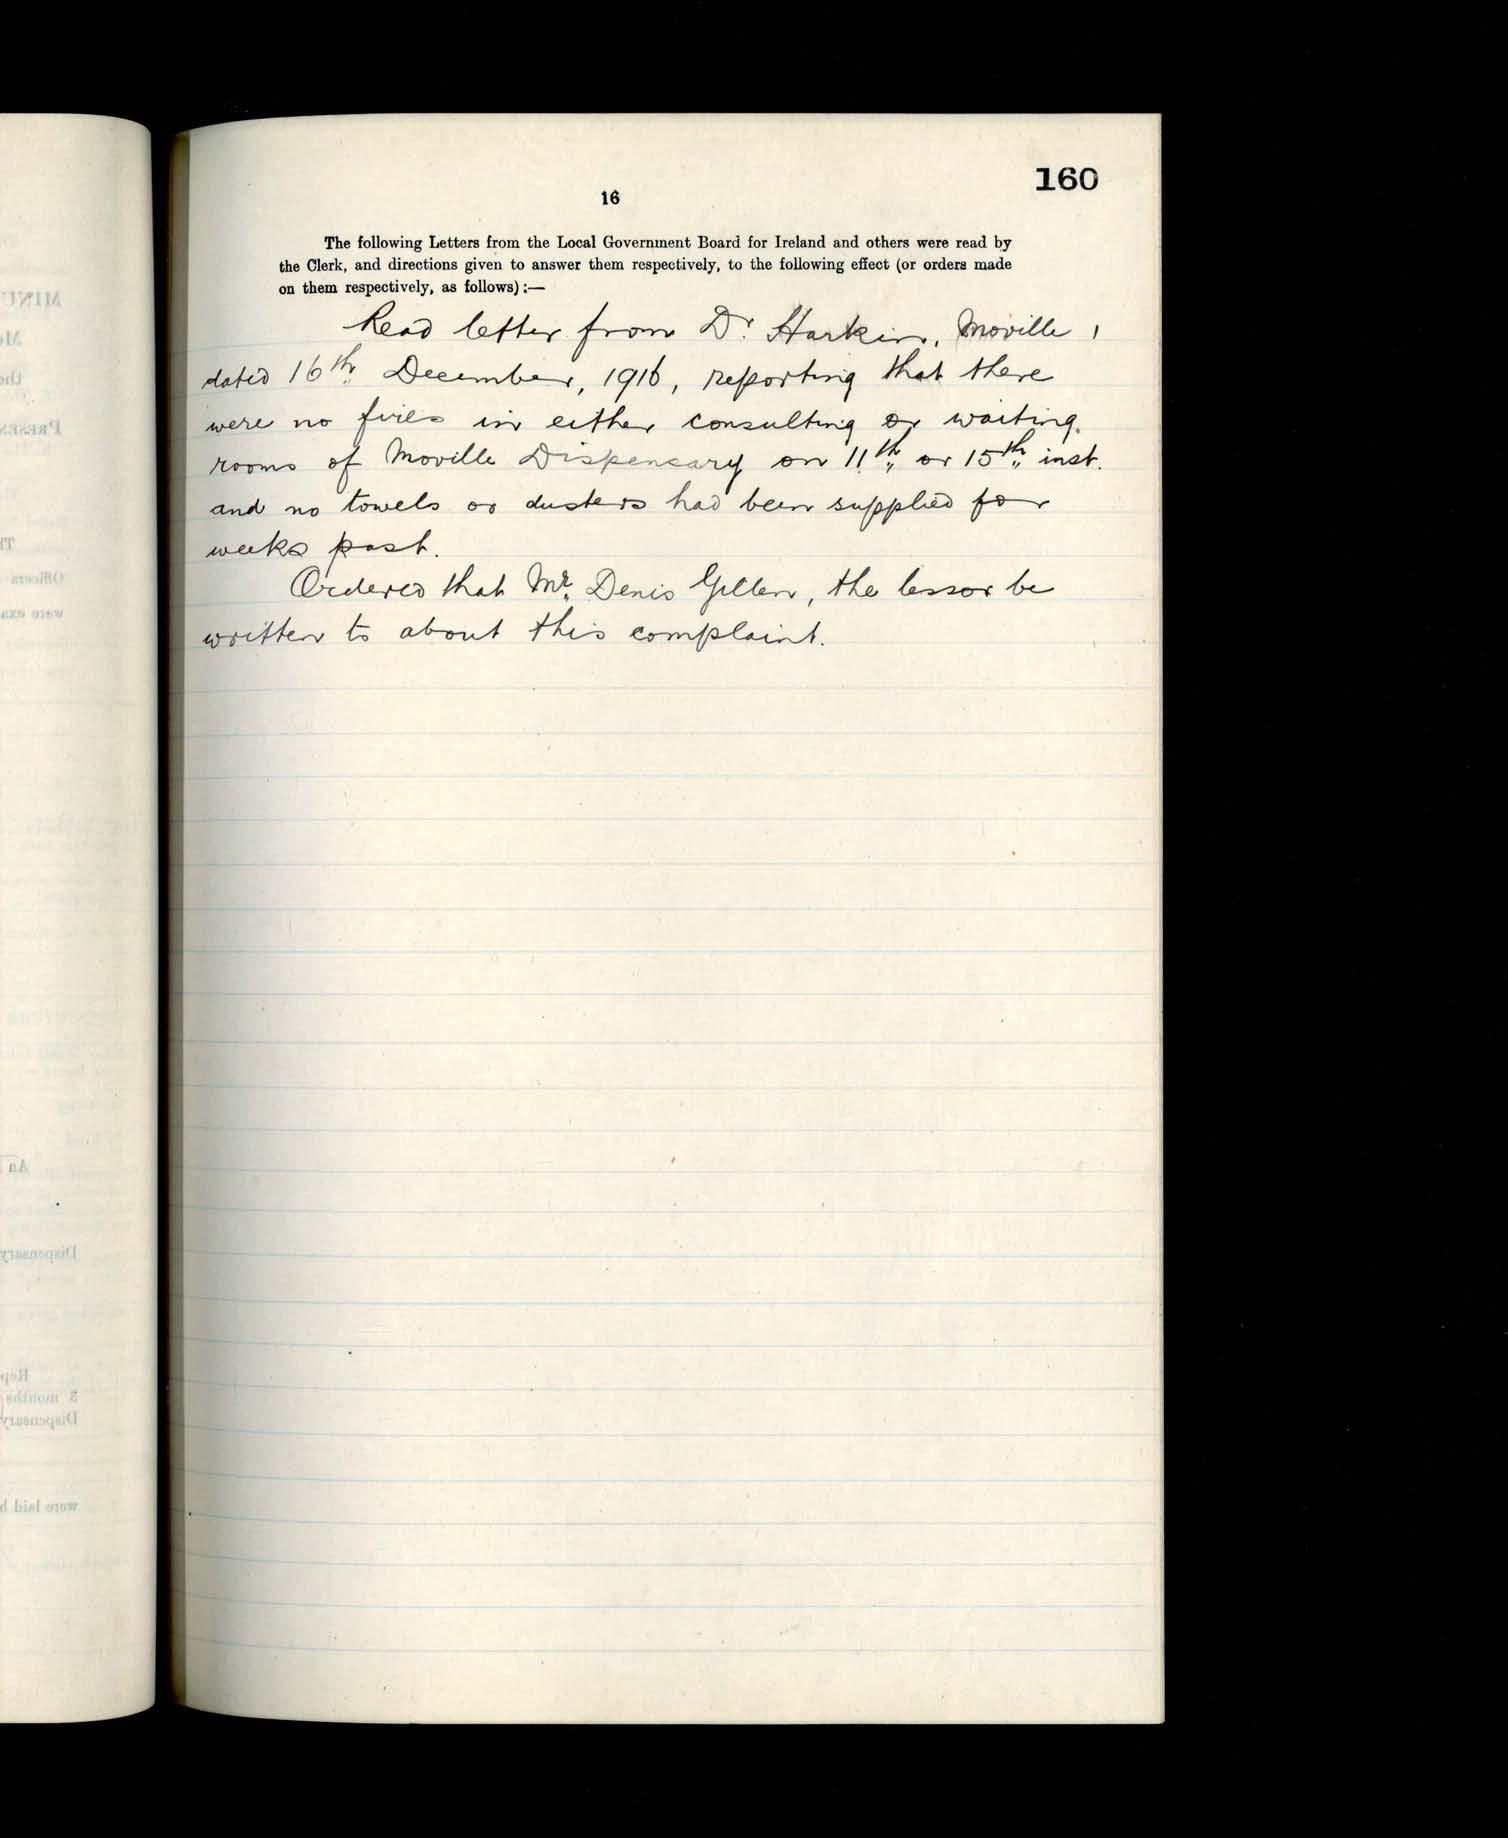 160
16
The following Letters from the Local Government Board for Ireland and others were read by
the Clerk, and directions given to answer them respectively, to the following effect (or orders made
on them respectively, as follows):—
Read letter from Dr. Harkin, Moville,
dated 16th December, 1916, reporting that there
were no fires in either consulting or waiting
rooms of Moville Dispensary on 11th or 15th inst.
and no towels or dusters had been supplied for
weeks past.
Ordered that Mr. Denis Gillen, the lessor be
written to about this complaint.